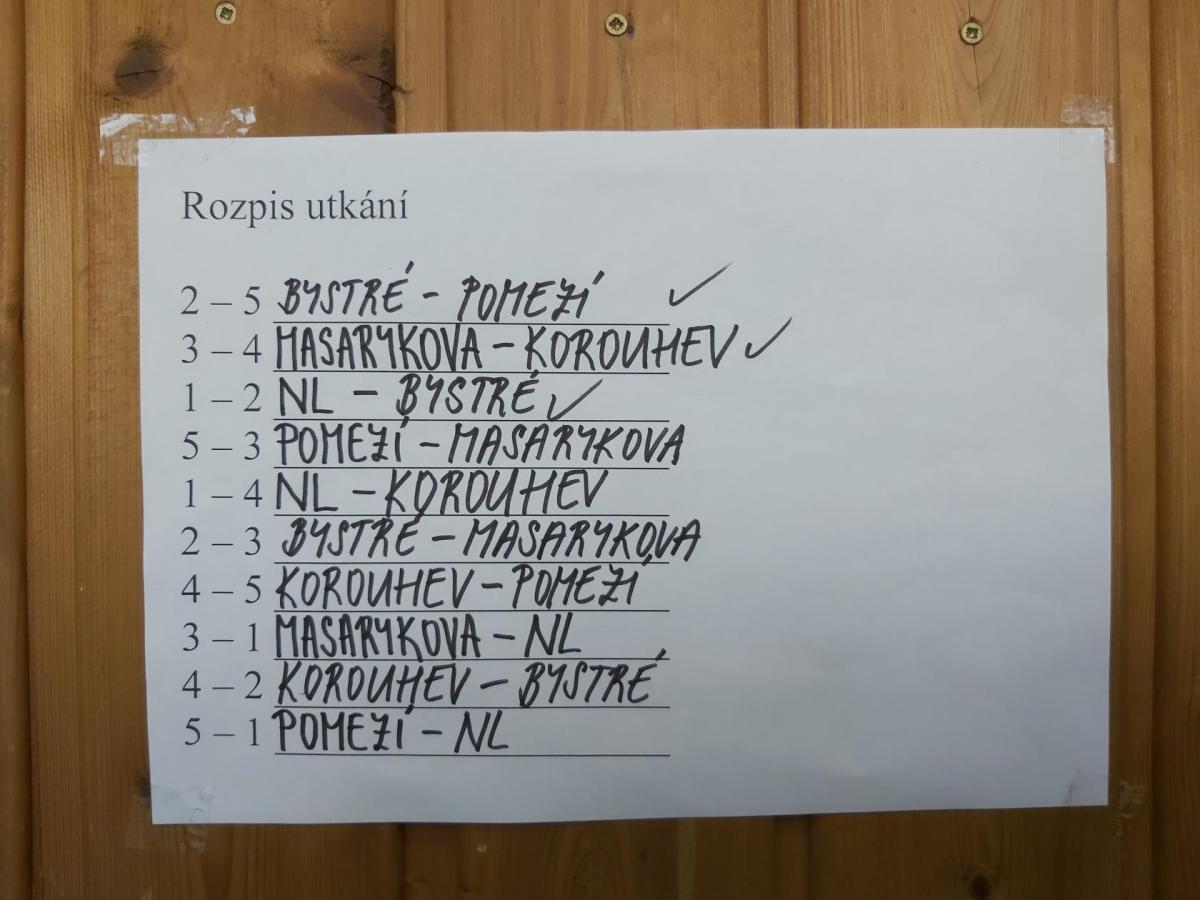 Rozpis utkání
2 – 5 BYSTRÉ – POMEZÍ ✓
3 – 4 MASARYKOVA – KOROUHEV ✓
1 – 2 NL – BYSTRÉ ✓
5 – 3 POMEZÍ – MASARYKOVA
1 – 4 NL – KOROUHEV
2 – 3 BYSTRÉ – MASARYKOVA
4 – 5 KOROUHEV – POMEZÍ
3 – 1 MASARYKOVA – NL
4 – 2 KOROUHEV – BYSTRÉ
5 – 1 POMEZÍ – NL